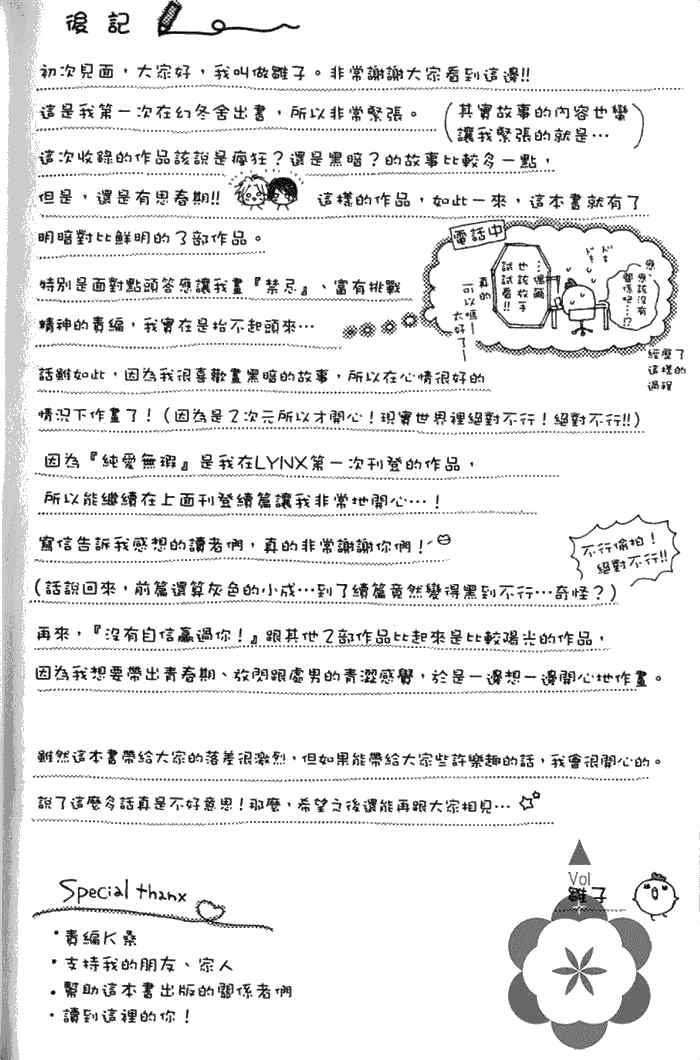 後記
初次見面，大家好，我叫做雛子。非常謝謝大家看到這邊!!
這是我第一次在幻冬舍出書，所以非常緊張。
（其實故事的內容也蠻
讓我緊張的就是…）
這次收錄的作品該說是瘋狂？還是黑暗？的故事比較多一點，
但是，還是有思春期!! 這樣的作品，如此一來，這本書就有了
明暗對比鮮明的了部作品。
電話中
應、應該沒有
那樣吧…!?
ドキ
ドキ
…偶爾
也該收手
試試看!!
真的
可以嗎—
太好了—
經歷了
這樣的
過程
特別是面對點頭答應讓我畫『禁忌』、富有挑戰
精神的責編，我實在是抬不起頭來…
話雖如此，因為我很喜歡畫黑暗的故事，所以在心情很好的
情況下作畫了！（因為是2次元所以才開心！現實世界裡絕對不行！絕對不行!!）
因為『純愛無瑕』是我在LYNX第一次刊登的作品，
所以能繼續在上面刊登續篇讓我非常地開心…！
寫信告訴我感想的讀者們，真的非常謝謝你們！
不行偷拍！
絕對不行!!
（話說回來，前篇還算灰色的小成…到了續篇竟然變得黑到不行…奇怪？）
再來，『沒有自信贏過你！』跟其他2部作品比起來是比較陽光的作品，
因為我想要帶出青春期、放閃跟處男的青澀感覺，於是一邊想一邊開心地作畫。
雖然這本書帶給大家的落差很激烈，但如果能帶給大家些許樂趣的話，我會很開心的。
說了這麼多話真是不好意思！那麼，希望之後還能再跟大家相見…
Vol
雛子
Special thanx
・責編K桑
・支持我的朋友、家人
・幫助這本書出版的關係者們
・讀到這裡的你！